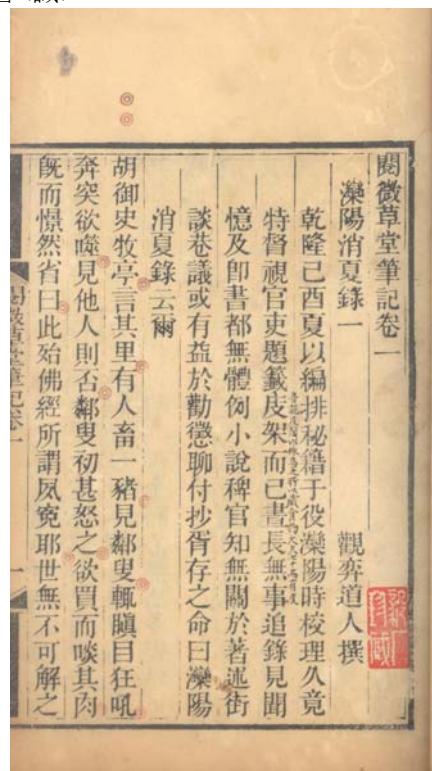 閱微草堂筆記卷一
灤陽消夏錄一　觀弈道人撰
乾隆己酉夏以編排秘籍于役灤陽時校理久竟
特督視官吏題籤庋架而已晝長無事追錄見聞
憶及卽書都無體例小說稗官知無關於著述街
談巷議或有益於勸懲聊付抄胥存之命曰灤陽
消夏錄云爾
胡御史牧亭言其里有人畜一豬見鄰叟輒瞋目狂吼
奔突欲噬見他人則否鄰叟初甚怒之欲買而啖其肉
旣而憬然省曰此殆佛經所謂夙寃耶世無不可解之
閱微草堂筆記卷一
一